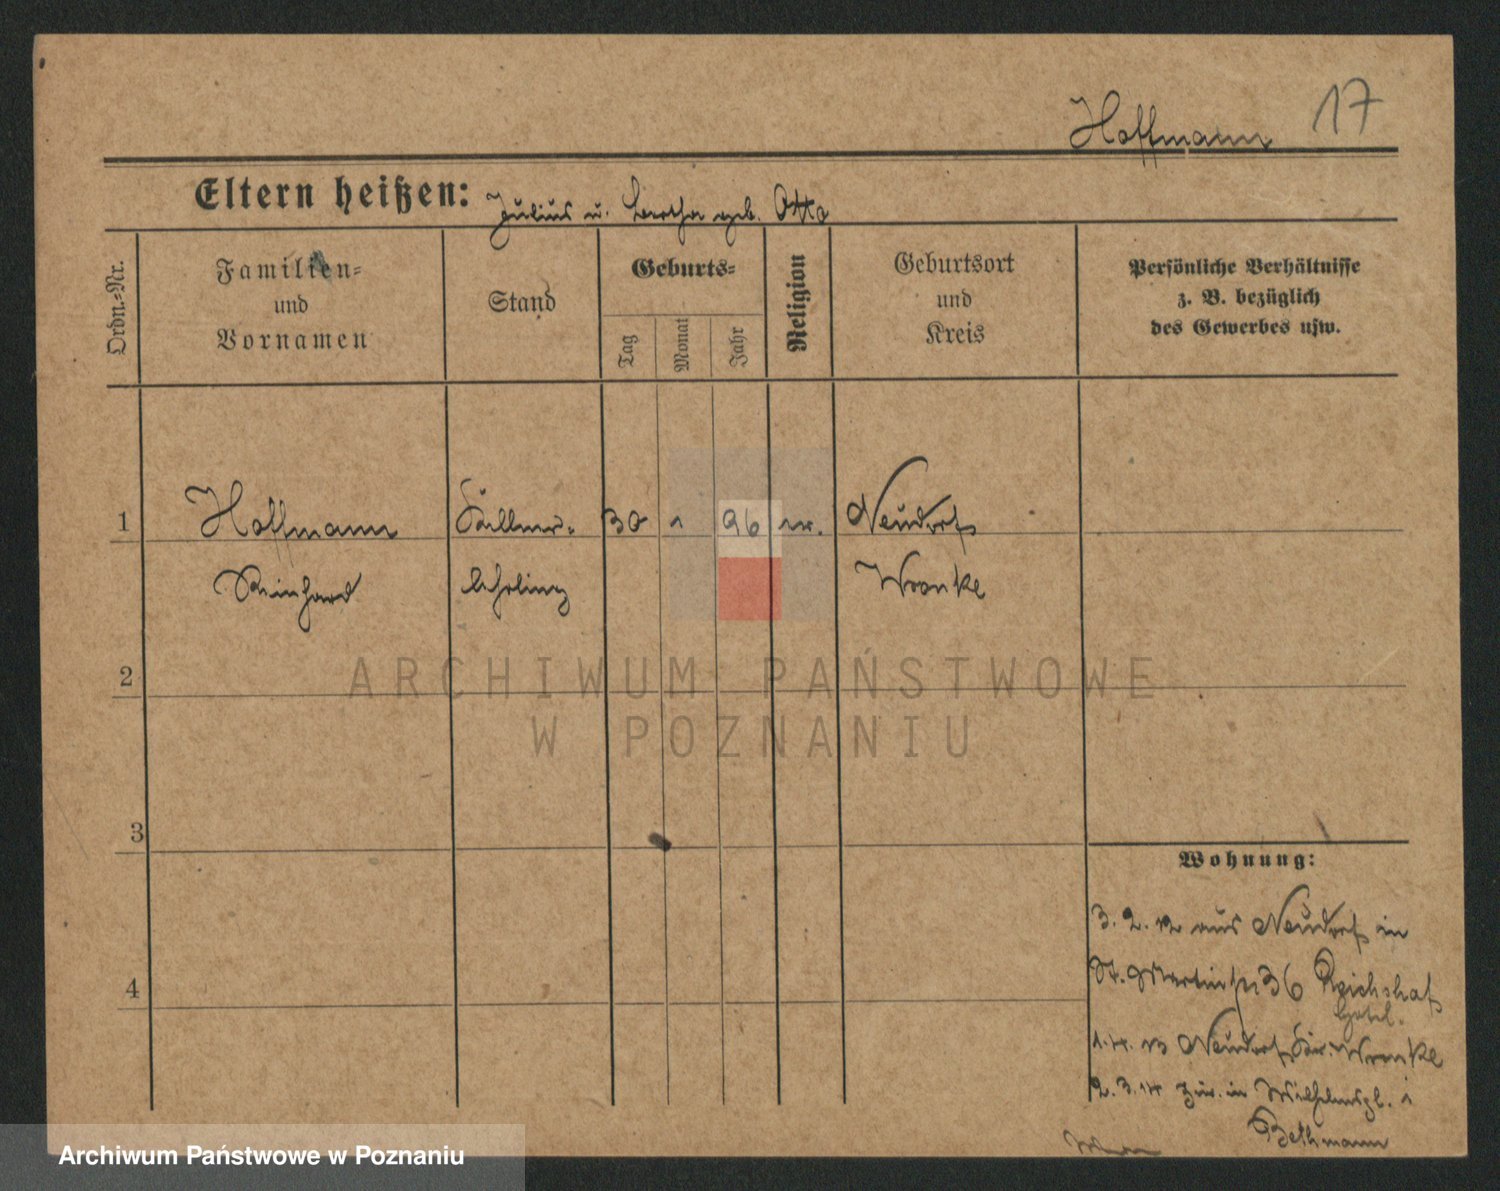 Hoffmann 17
Eltern heißen: Julius u. Bertha geb. Otto
Ordn.-Nr.
Familien-
und
Vornamen
Stand
Geburts-
Tag
Monat
Jahr
Religion
Geburtsort
und
Kreis
Persönliche Verhältnisse
z. B. bezüglich
des Gewerbes usw.
1 Hoffmann Kellner- 30 1 96 ev. Neudorf
Reinhard lehrling Wronke
2
ARCHIWUM PAŃSTWOWE
W POZNANIU
3
Wohnung:
3. 2. 12 aus Neudorf in
St. Martinstr 36 Reichshof
Hotel.
4
1. 4. 13 Neudorf Kr. Wronke
2. 3. 14 zur. in Wilhelmspl. 1
Bethmann
Archiwum Państwowe w Poznaniu